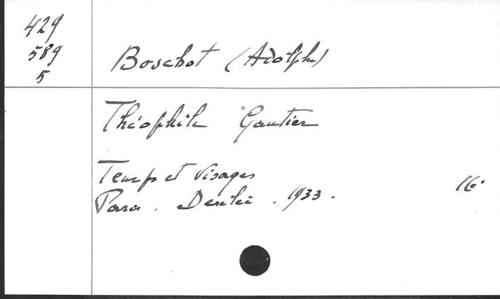 429
589
5
Boschot (Adolphe)
Théophile Gautier
Temps et Visages
Paris. Desclée. 1933.
16°